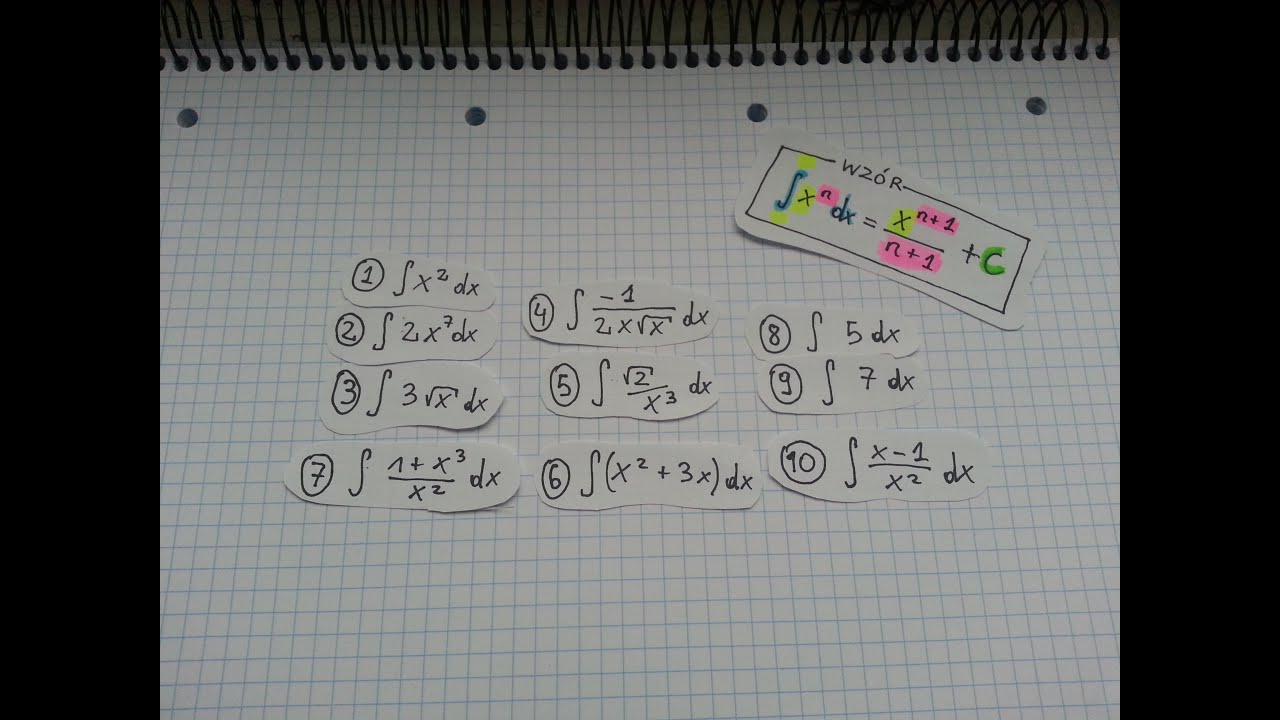 WZÓR
∫xⁿdx = xⁿ⁺¹/(n+1) + C
① ∫x² dx
② ∫2x⁷dx
③ ∫3√x dx
④ ∫ -1/(2x√x) dx
⑤ ∫ √2/x³ dx
⑦ ∫ (1+x³)/x² dx
⑥ ∫(x² + 3x) dx
⑧ ∫ 5 dx
⑨ ∫ 7 dx
⑩ ∫ (x-1)/x² dx